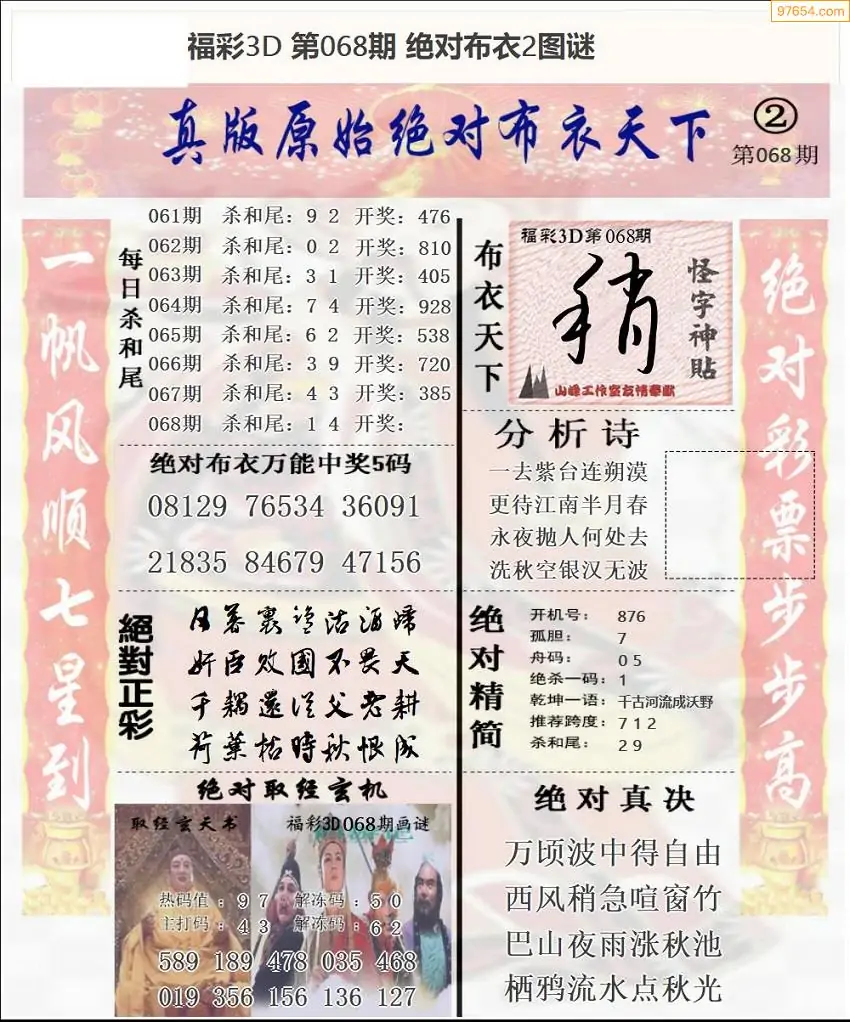 97654.com
福彩3D 第068期 绝对布衣2图谜
真版原始绝对布衣天下
②
第068期
一帆风顺七星到
每日杀和尾
061期 杀和尾：9 2 开奖：476
062期 杀和尾：0 2 开奖：810
063期 杀和尾：3 1 开奖：405
064期 杀和尾：7 4 开奖：928
065期 杀和尾：6 2 开奖：538
066期 杀和尾：3 9 开奖：720
067期 杀和尾：4 3 开奖：385
068期 杀和尾：1 4 开奖：
绝对布衣万能中奖5码
08129 76534 36091
21835 84679 47156
絕對正彩
月暮裏鹽沽酒歸
奸臣败國不畏天
千耦還從父老耕
荷葉枯時秋恨成
绝对取经玄机
取经玄天书
福彩3D068期画谜
热码值：9 7 解冻码：5 0
主打码：4 3 解冻码：6 2
589 189 478 035 468
019 356 156 136 127
布衣天下
福彩3D第068期
稍
怪字神贴
山峰工作室友情奉献
分析诗
一去紫台连朔漠
更待江南半月春
永夜抛人何处去
洗秋空银汉无波
绝对精简
开机号： 876
孤胆： 7
舟码： 0 5
绝杀一码：1
乾坤一语：千古河流成沃野
推荐跨度：7 1 2
杀和尾： 2 9
绝对真决
万顷波中得自由
西风稍急喧窗竹
巴山夜雨涨秋池
栖鸦流水点秋光
绝对彩票步步高